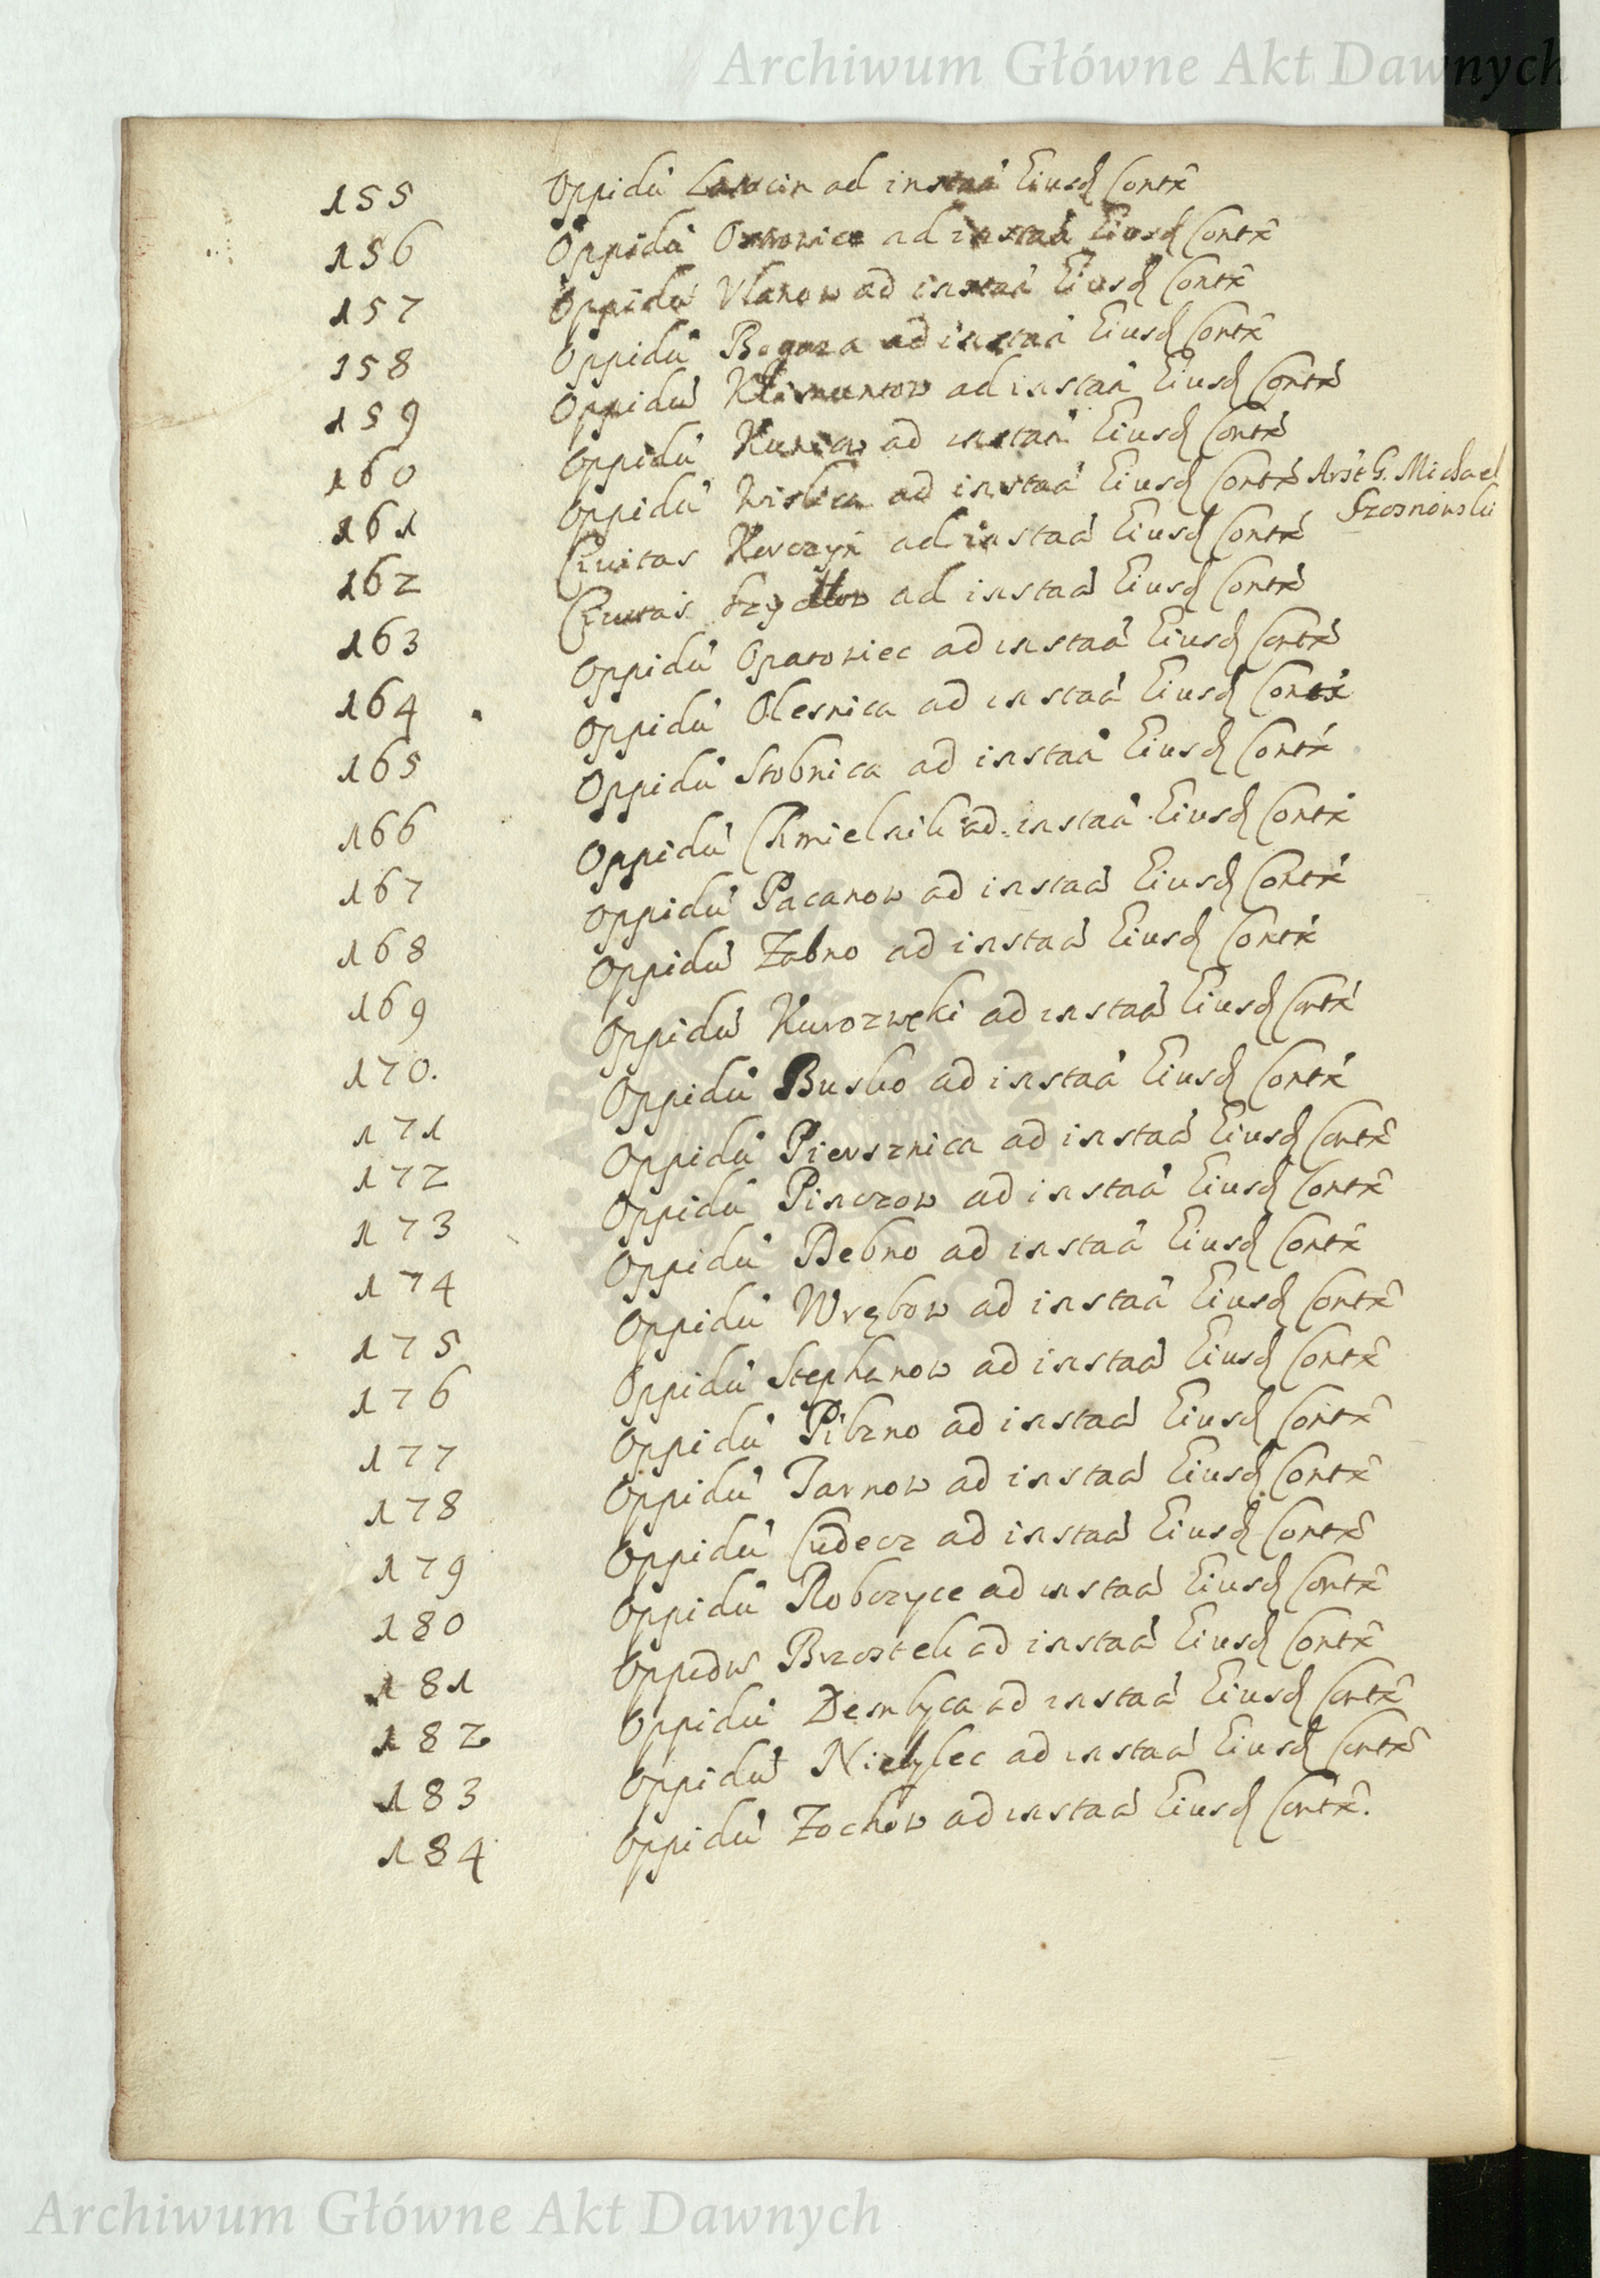 Archiwum Główne Akt Dawnych
155 Oppidũ Lasocin ad instaã Eiusd Contx
156 Oppidũ Ostrowiec ad instaã Eiusd Contx
157 Oppidũ Vlanow ad instaã Eiusd Contx
158 Oppidũ Bogoria ad instaã Eiusd Contx
159 Oppidũ Klimuntow ad instaã Eiusd Contx
160 Oppidũ Kunow ad instaã Eiusd Contx
161 Oppidũ Wislica ad instaã Eiusd Contx G. Michael
162 Civitas Korczyn ad instaã Eiusd Contx
163 Civitas Szydlow ad instaã Eiusd Contx
164 Oppidũ Opatowiec ad instaã Eiusd Contx
165 Oppidũ Olesnica ad instaã Eiusd Contx
166 Oppidũ Stobnica ad instaã Eiusd Contx
167 Oppidũ Chmielnik ad instaã Eiusd Contx
168 Oppidũ Pacanow ad instaã Eiusd Contx
169 Oppidũ Zabno ad instaã Eiusd Contx
170. Oppidũ Kurozwęki ad instaã Eiusd Contx
171 Oppidũ Busko ad instaã Eiusd Contx
172 Oppidũ Piersznica ad instaã Eiusd Contx
173 Oppidũ Pinczow ad instaã Eiusd Contx
174 Oppidũ Debno ad instaã Eiusd Contx
175 Oppidũ Wrębow ad instaã Eiusd Contx
176 Oppidũ Stephanow ad instaã Eiusd Contx
177 Oppidũ Pilzno ad instaã Eiusd Contx
178 Oppidũ Tarnow ad instaã Eiusd Contx
179 Oppidũ Cudecz ad instaã Eiusd Contx
180 Oppidũ Robczyce ad instaã Eiusd Contx
181 Oppidũ Brzostek ad instaã Eiusd Contx
182 Oppidũ Dembyca ad instaã Eiusd Contx
183 Oppidũ Niebylec ad instaã Eiusd Contx
184 Oppidũ Zochow ad instaã Eiusd Contx.
Archiwum Główne Akt Dawnych